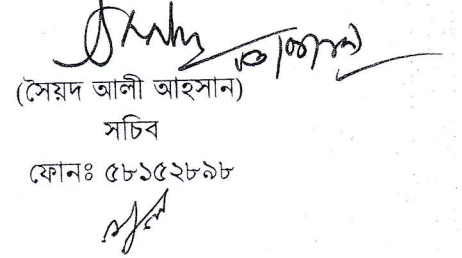 (সৈয়দ আলী আহসান)
সচিব
ফোনঃ ৫৮১৫২৮৯৮